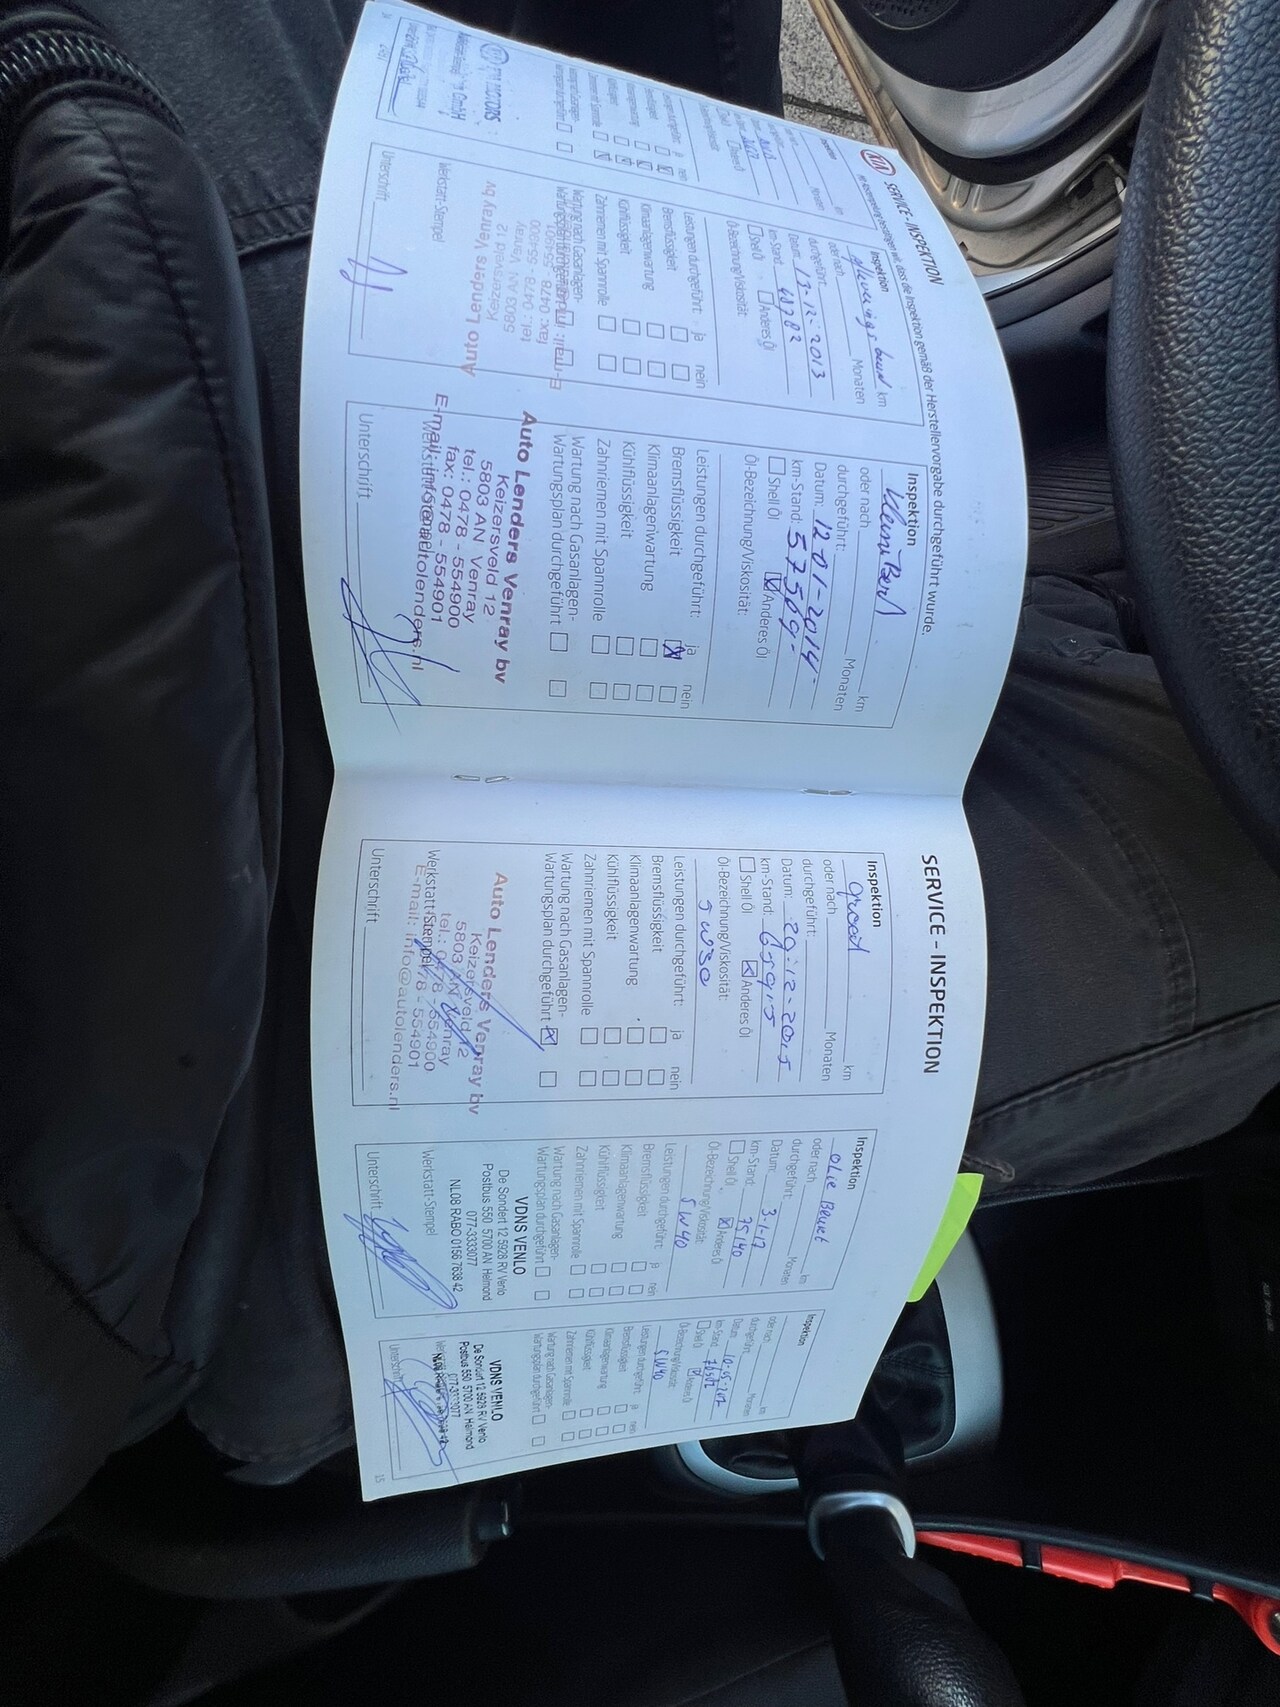 KIA
SERVICE - INSPEKTION
Mit Abstempelung bestätigen wir, dass die Inspektion gemäß der Herstellervorgabe durchgeführt wurde.
Inspektion
km
oder nach Monaten
durchgeführt:
Shell Öl Anderes Öl
ja nein
MOTORS
GmbH
14
Inspektion
beurt km
oder nach Monaten
durchgeführt:
Datum: 13-12-2013
km-Stand: 48782
Shell Öl Anderes Öl
Öl-Bezeichnung/Viskosität:
Leistungen durchgeführt: ja nein
Bremsflüssigkeit
Klimaanlagenwartung
Kühlflüssigkeit
Zahnriemen mit Spannrolle
Wartung nach Gasanlagen-
Wartungsplan durchgeführt
Auto Lenders Venray bv
Keizersveld 12
5803 AN Venray
tel.: 0478 - 554900
fax: 0478 - 554901
Werkstatt-Stempel
Unterschrift
Inspektion
kleine Beurt
km
oder nach Monaten
durchgeführt:
Datum: 12 01-2014
km-Stand: 57509-
Shell Öl Anderes Öl
Öl-Bezeichnung/Viskosität:
Leistungen durchgeführt: ja nein
Bremsflüssigkeit
Klimaanlagenwartung
Kühlflüssigkeit
Zahnriemen mit Spannrolle
Wartung nach Gasanlagen-
Wartungsplan durchgeführt
Auto Lenders Venray bv
Keizersveld 12
5803 AN Venray
tel.: 0478 - 554900
fax: 0478 - 554901
E-mail: info@autolenders.nl
Werkstatt-Stempel
Unterschrift
SERVICE - INSPEKTION
Inspektion
groot
km
oder nach Monaten
durchgeführt:
Datum: 29-12-2015
km-Stand: 69915
Shell Öl Anderes Öl
Öl-Bezeichnung/Viskosität:
5W30
Leistungen durchgeführt: ja nein
Bremsflüssigkeit
Klimaanlagenwartung
Kühlflüssigkeit
Zahnriemen mit Spannrolle
Wartung nach Gasanlagen-
Wartungsplan durchgeführt
Auto Lenders Venray bv
Keizersveld 12
5803 AN Venray
tel.: 0478 - 554900
0478 - 554901
Werkstatt-Stempel
E-mail: info@autolenders.nl
Unterschrift
Inspektion
olie Beurt
km
oder nach Monaten
durchgeführt:
Datum: 3-1-17
km-Stand: 75140
Shell Öl Anderes Öl
Öl-Bezeichnung/Viskosität:
5W40
Leistungen durchgeführt: ja nein
Bremsflüssigkeit
Klimaanlagenwartung
Kühlflüssigkeit
Zahnriemen mit Spannrolle
Wartung nach Gasanlagen-
Wartungsplan durchgeführt
VDNS VENLO
De Sondert 12 5928 RV Venlo
Postbus 550 5700 AN Helmond
077-3333077
NL08 RABO 0156 7638 42
Werkstatt-Stempel
Unterschrift
Inspektion
km
oder nach Monaten
durchgeführt:
Datum: 10-05-2017
km-Stand:
Shell Öl Anderes Öl
Öl-Bezeichnung/Viskosität:
5W40
Leistungen durchgeführt: ja nein
Bremsflüssigkeit
Klimaanlagenwartung
Kühlflüssigkeit
Zahnriemen mit Spannrolle
Wartung nach Gasanlagen-
Wartungsplan durchgeführt
VDNS VENLO
De Sondert 12 5928 RV Venlo
Postbus 550 5700 AN Helmond
077-3333077
Unterschrift
15